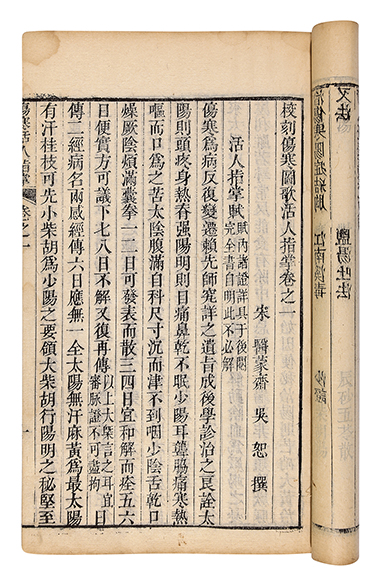 校刻傷寒圖歌活人指掌卷之一
宋 醫蒙齋 吳 恕 撰
活人指掌賦 賦內諸證詳具于後閱
完全書自明此不必解
傷寒為病反復變遷賴先師究詳之遺旨成後學診治之良詮太
陽則頭疼身熱脊强陽明則目痛鼻乾不眠少陽耳聾脇痛寒熱
嘔而口為之苦太陰腹滿自利尺寸沉而津不到咽少陰舌乾口
燥厥陰煩滿囊拳一二日可發表而散三四日宜和解而痊五六
日便實方可議下七八日不解又復再傳 以上大槩言之耳宜
審脉證不可盡拘 日
傳二經病名兩感經傳六日應無一全太陽無汗麻黃為最太陽
有汗桂枝可先小柴胡為少陽之要領大柴胡行陽明之秘堅至
傷寒活人指掌 卷之一 一
又法
鹽湯吐法